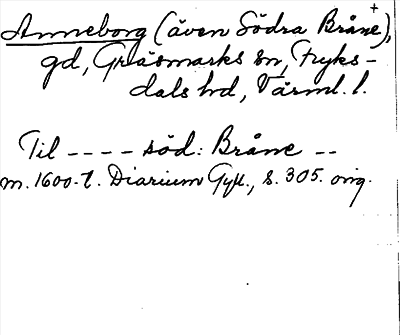 Anneborg (även Södra Bråne+),
gd, Gräsmarks sn, Fryks-
dals hd, Värml. l.
Til ---- söd: Bråne --
m. 1600-t. Diarium Gyll., s. 305. orig.